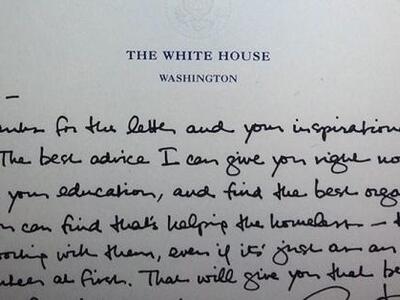 THE WHITE HOUSE
WASHINGTON
—
for the letter and your inspiration
The best advice I can give you right no
your education, and find the best orga
can find that's helping the homeless —
with them, even if it's just as an
at first. That will give you that be